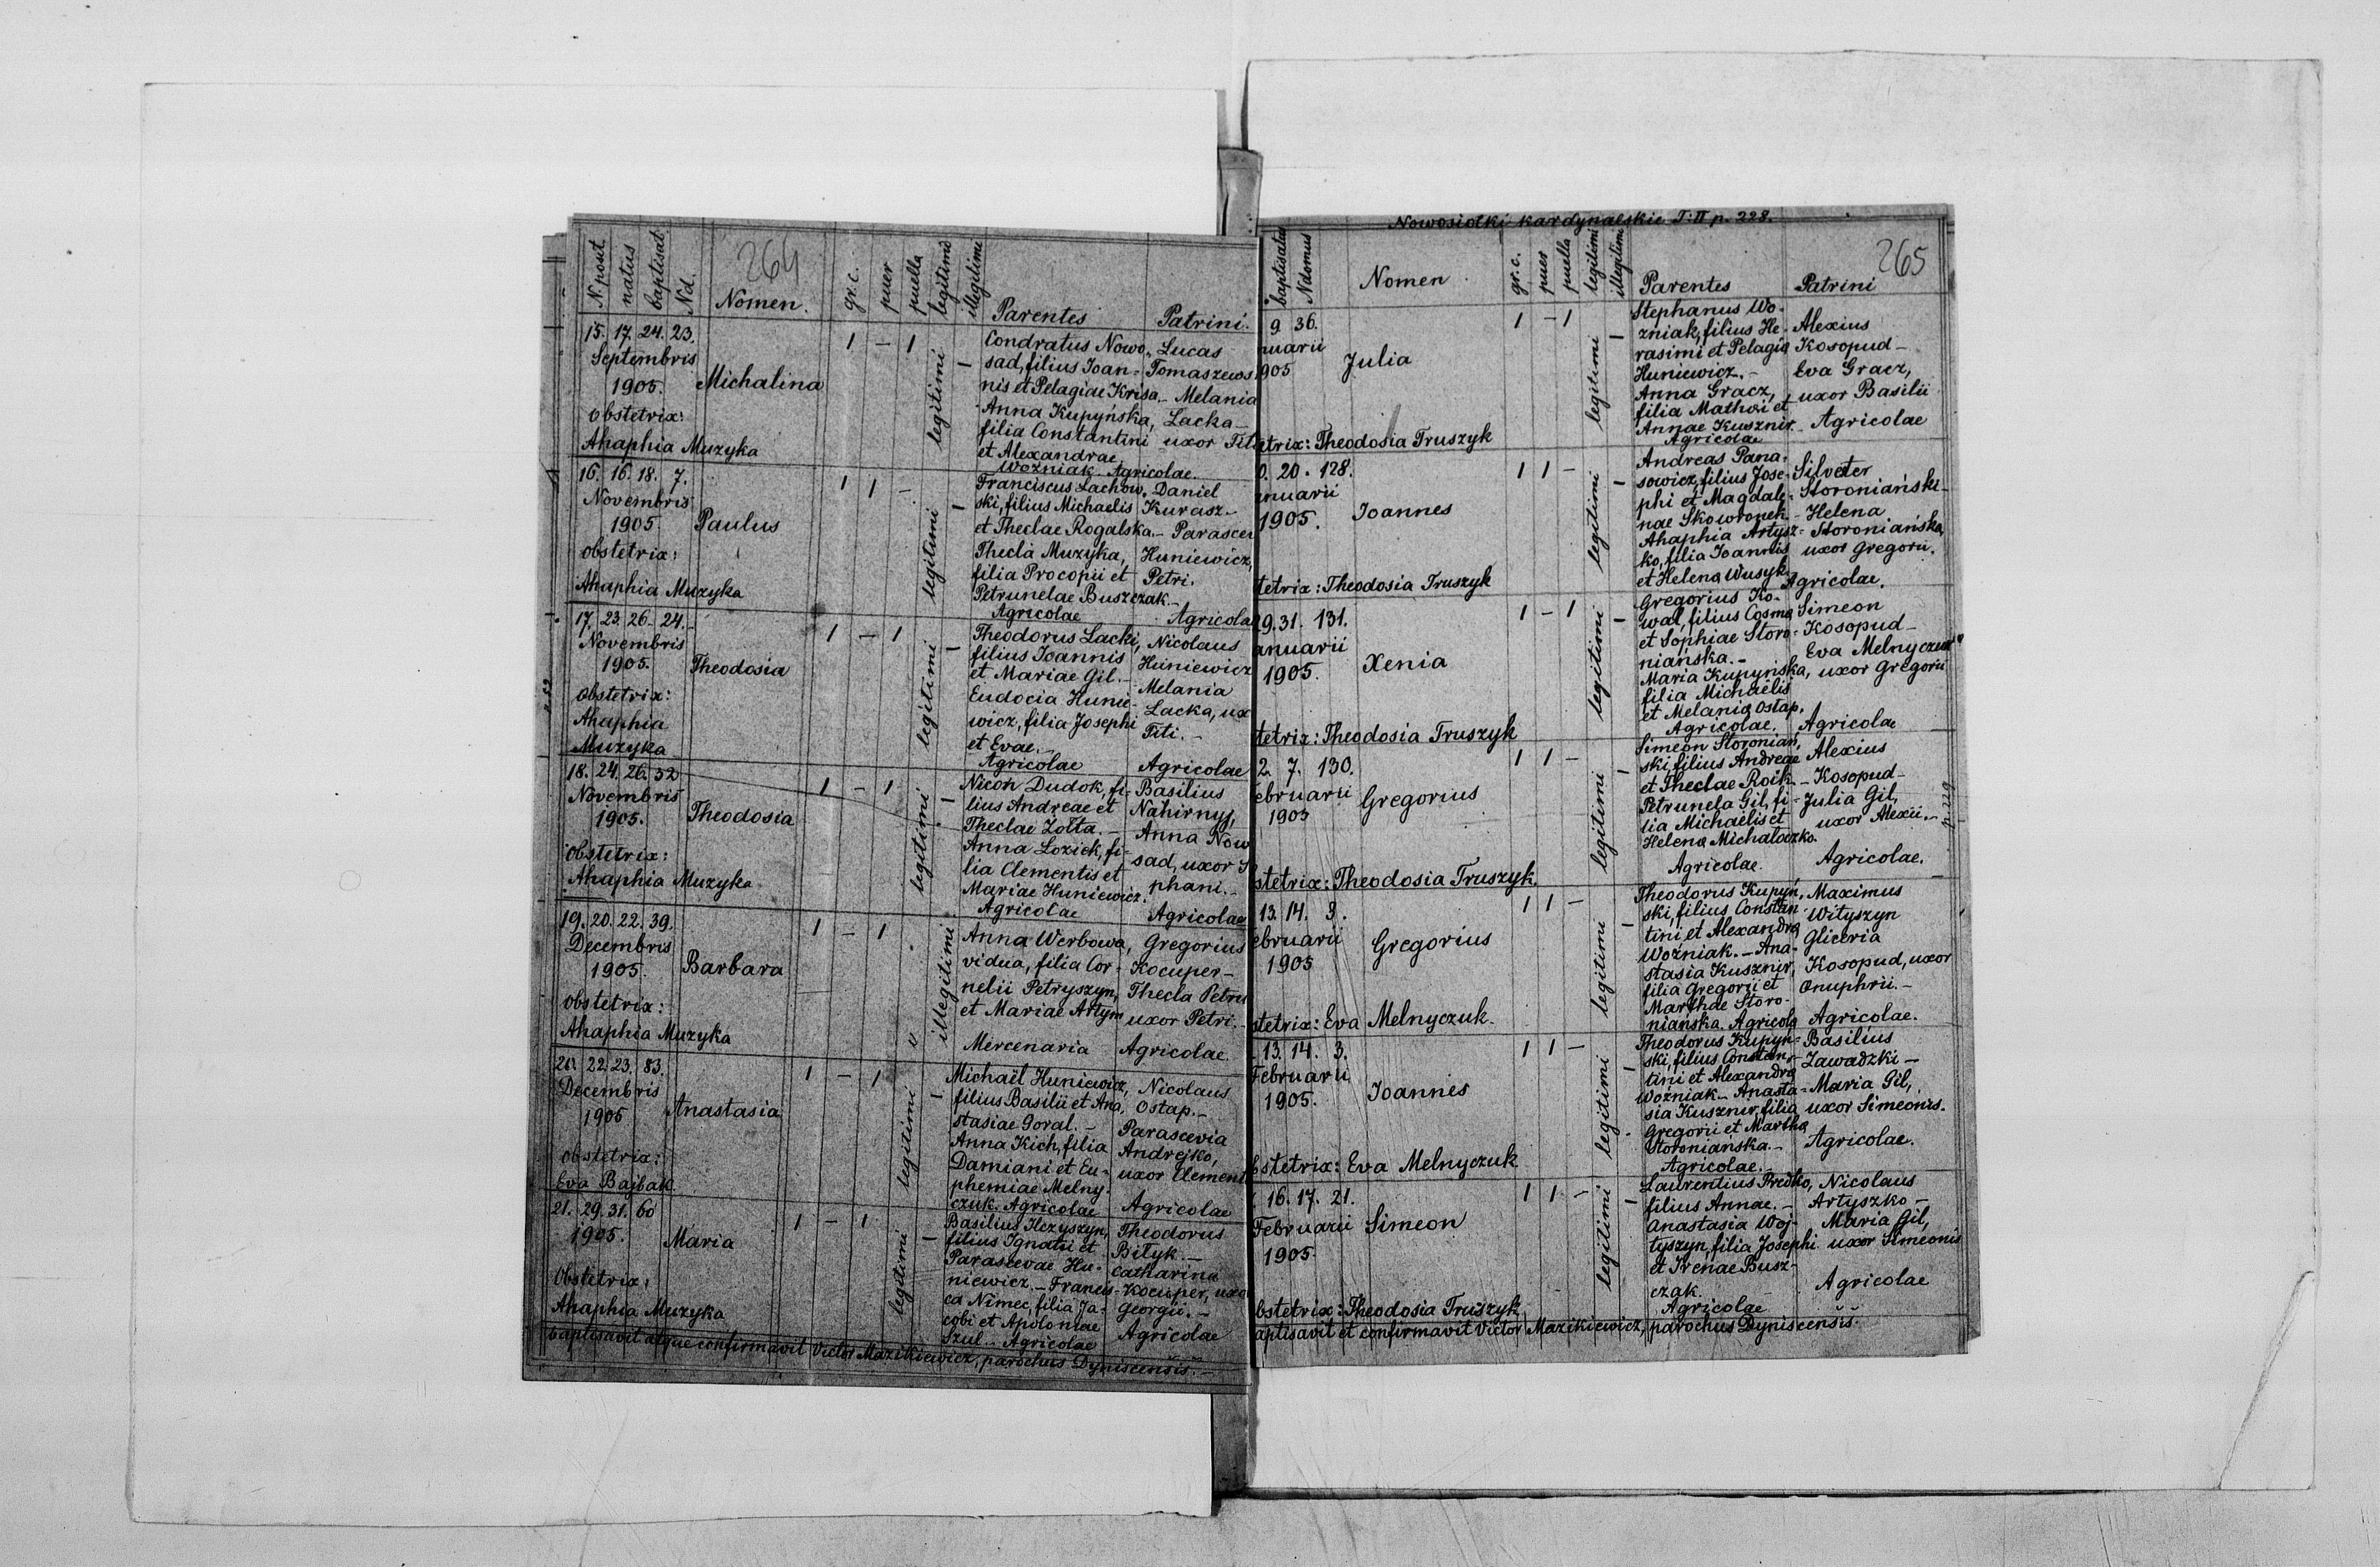 264
N. post
natus
baptisat
Nd.
Nomen.
gr. c.
puer
puella
legitimi
illegitimi
Parentes
Patrini.
15. 17. 24. 23.
Septembris
1905.
Michalina
obstetrix:
Ahaphia Muzyka
1 – 1
legitimi
Condratus Nowo-
sad, filius Ioan-
nis et Pelagiae Krisa.-
Anna Kupyńska,
filia Constantini
et Alexandrae
Woźniak Agricolae.
Lucas
Tomaszews
Melania
Lacka
uxor Tit
16. 16. 18. 7.
Novembris
1905.
Paulus
obstetrix:
Ahaphia Muzyka
1 1 –
legitimi
Franciscus Lachow-
ski, filius Michaelis
et Theclae Rogalska.-
Thecla Muzyka,
filia Procopii et
Petrunelae Buszczak.-
Agricolae
Daniel
Kurasz.-
Parascev
Huniewicz,
Petri.
Agricola
17. 23. 26. 24.
Novembris
1905.
Theodosia
obstetrix:
Ahaphia
Muzyka
1 – 1
legitimi
Theodorus Lacki,
filius Ioannis
et Mariae Gil.-
Eudocia Hunie-
wicz, filia Josephi
et Evae.-
Agricolae
Nicolaus
Huniewicz
Melania
Lacka, ux
Titi.-
Agricolae
18. 24. 26. 52
Novembris
1905.
Theodosia
obstetrix:
Ahaphia Muzyka
1 – 1
legitimi
Nicon Dudok, fi-
lius Andreae et
Theclae Żółta.-
Anna Łozick, fi-
lia Clementis et
Mariae Huniewicz.
Agricolae
Basilius
Nahirnyj,
Anna Now
sad, uxor S
phani.-
Agricolae
19. 20. 22. 39.
Decembris
1905.
Barbara
obstetrix:
Ahaphia Muzyka
1 – 1
illegitimi
Anna Werbowa,
vidua, filia Cor-
nelii Petryszyn,
et Mariae Artym
Mercenaria
Gregorius
Kocuper-
Thecla Petry
uxor Petri.-
Agricolae
20. 22. 23. 83.
Decembris
1905
Anastasia
obstetrix:
Eva Bajbak
1 – 1
legitimi
Michaël Huniewicz,
filius Basilii et Ana-
stasiae Goral.-
Anna Kich, filia
Damiani et Eu-
phemiae Melny-
czuk. Agricolae
Nicolaus
Ostap.-
Parascevia
Andrejko,
uxor Clement
Agricolae
21. 29. 31. 60
1905.
Maria
Obstetrix:
Ahaphia Muzyka
1 – 1
legitimi
Basilius Ilczyszyn,
filius Ignatii et
Parascevae Hu-
niewicz.- Francis-
ca Nimec, filia Ja-
cobi et Apoloniae
Szul.- Agricolae
Theodorus
Bityk.-
Catharina
Kocuper, uxo
Georgii.-
Agricolae
baptisavit atque confirmavit Victor Mazikiewicz, parochus Dyniscensis.-
Nowosiołki kardynalskie T: II p. 228.
265
baptisatus
N domus
Nomen
gr. c.
puer
puella
legitimi
illegitimi
Parentes
Patrini
9 36.
nuarii
1905
Julia
etrix: Theodosia Truszyk
1 – 1
legitimi
Stephanus Wo-
zniak, filius He-
rasimi et Pelagia
Huniewicz.-
Anna Gracz,
filia Mathei et
Annae Kusznir.
Agricolae
Alexius
Kosopud-
Eva Gracz,
uxor Basilii
Agricolae
0. 20. 128.
anuarii
1905.
Ioannes
tetrix: Theodosia Truszyk
1 1 –
legitimi
Andreas Pana-
sowicz, filius Jose-
phi et Magdale-
nae Skowronek.-
Ahaphia Artysz-
ko, filia Ioannis
et Helena Wusyk.
Silvester
Storoniański-
Helena
Storoniańska
uxor Gregorii.
Agricolae.
29. 31. 131.
anuarii
1905.
Xenia
tetrix: Theodosia Truszyk
1 – 1
legitimi
Gregorius Ko-
wal, filius Cosma
et Sophiae Storo-
niańska.-
Maria Kupyńska,
filia Michaelis
et Melania Ostap.
Agricolae.
Simeon
Kosopud-
Eva Melnyczuk
uxor Gregorii
Agricolae
2. 7. 130.
ebruarii
1905
Gregorius
stetrix: Theodosia Truszyk.
1 1 –
legitimi
Simeon Storoniań-
ski, filius Andreae
et Theclae Roik.-
Petrunela Gil, fi-
lia Michaelis et
Helena Michałoczko.
Agricolae.
Alexius
Kosopud-
Julia Gil,
uxor Alexii.-
Agricolae.
p. 229
13. 14. 3.
ebruarii
1905
Gregorius
stetrix: Eva Melnyczuk.
1 1 –
legitimi
Theodorus Kupyń-
ski, filius Constan-
tini et Alexandra
Woźniak.- Ana-
stasia Kusznir,
filia Gregorii et
Marthae Storo-
niańska. Agricola
Maximus
Wityszyn
Gliceria
Kosopud, uxor
Onuphrii.-
Agricolae.
13. 14. 3.
Februarii
1905.
Ioannes
bstetrix: Eva Melnyczuk
1 1 –
legitimi
Theodorus Kupyń-
ski, filius Constan-
tini et Alexandra
Woźniak.- Anasta-
sia Kusznir, filia
Gregorii et Martha
Storoniańska.-
Agricolae.-
Basilius
Zawadzki-
Maria Gil,
uxor Simeonis.
Agricolae.
16. 17. 21.
Februarii
1905
Simeon
bstetrix: Theodosia Truszyk
1 1 –
legitimi
Laurentius Predko,
filius Annae.-
Anastasia Woj-
tyszyn, filia Josephi
et Irenae Busz-
czak.
Agricolae
Nicolaus
Artyszko-
Maria Gil,
uxor Simeonis
Agricolae
aptisavit et confirmavit Victor Mazikiewicz, parochus Dyniscensis.